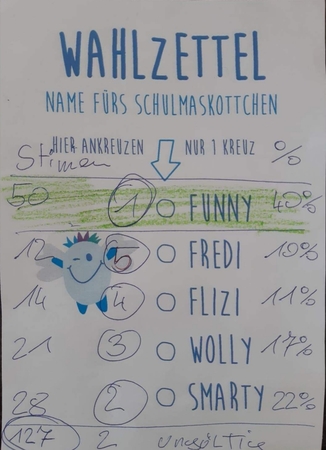 WAHLZETTEL
NAME FÜRS SCHULMASKOTTCHEN
HIER ANKREUZEN NUR 1 KREUZ %
Stimmen
50 1 FUNNY 40%
12 5 FREDI 10%
14 4 FLIZI 11%
21 3 WOLLY 17%
28 2 SMARTY 22%
127 2 ungültige